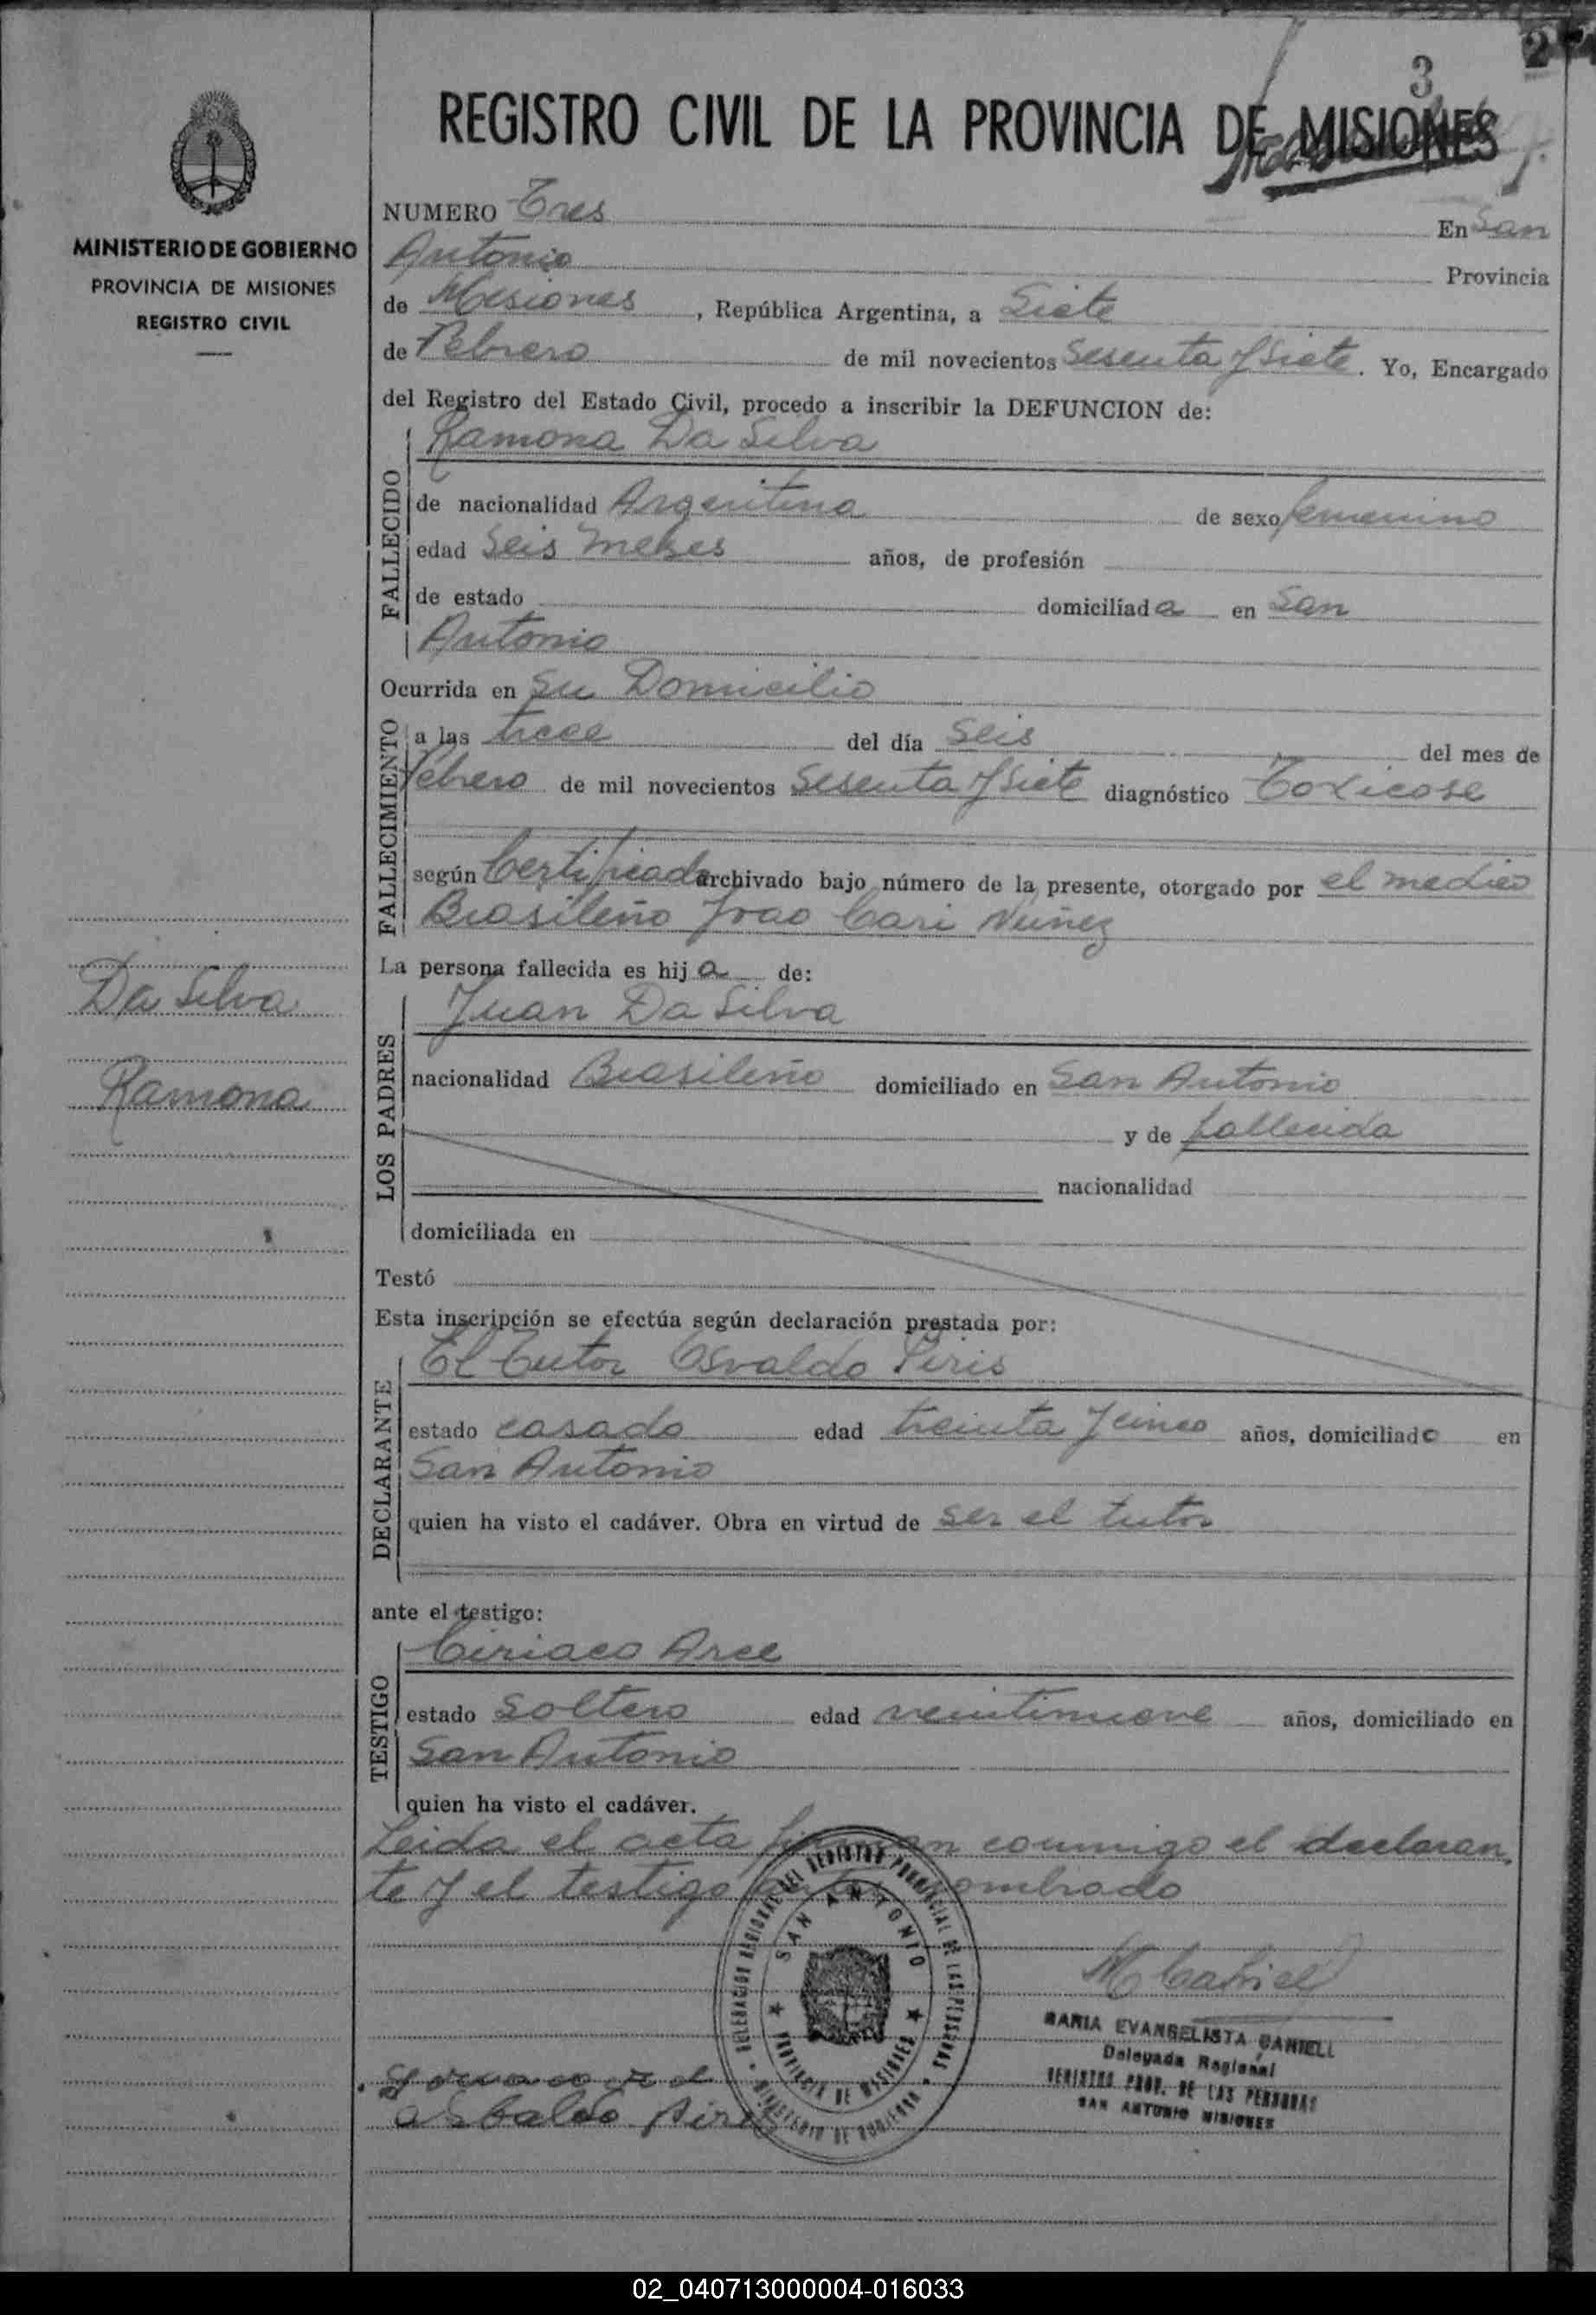 2
3
REGISTRO CIVIL DE LA PROVINCIA DE MISIONES
MINISTERIO DE GOBIERNO
PROVINCIA DE MISIONES
REGISTRO CIVIL
NUMERO Tres En San
Antonio Provincia
de Misiones, República Argentina, a Siete
de Febrero de mil novecientos Sesenta y Siete. Yo, Encargado
del Registro del Estado Civil, procedo a inscribir la DEFUNCION de:
FALLECIDO
Ramona Da Silva
de nacionalidad Argentina de sexo femenino
edad Seis meses años, de profesión
de estado domiciliada en San
Antonio
Ocurrida en Su Domicilio
FALLECIMIENTO
a las trece del día Seis del mes de
Febrero de mil novecientos Sesenta y Siete diagnóstico Toxicose
según Certificado archivado bajo número de la presente, otorgado por el medico
Brasileño Joao Cari Nuñez
La persona fallecida es hija de:
Da Silva
Ramona
LOS PADRES
Juan Da Silva
nacionalidad Brasileño domiciliado en San Antonio
y de fallecida
nacionalidad
domiciliada en
Testó
Esta inscripción se efectúa según declaración prestada por:
DECLARANTE
El tutor Osvaldo Piris
estado casado edad treinta y cinco años, domiciliado en
San Antonio
quien ha visto el cadáver. Obra en virtud de ser el tutor
ante el testigo:
TESTIGO
Ciriaco Arce
estado Soltero edad veintinueve años, domiciliado en
San Antonio
quien ha visto el cadáver.
Leida el acta firman conmigo el declaran
te y el testigo antes nombrado
DELEGACION REGIONAL DEL REGISTRO PROVINCIAL DE LAS PERSONAS
SAN ANTONIO
PROVINCIA DE MISIONES
MINISTERIO DE GOBIERNO
MARIA EVANGELISTA
Delegada Regional
REGISTRO PROV. DE LAS PERSONAS
SAN ANTONIO MISIONES
02_040713000004-016033